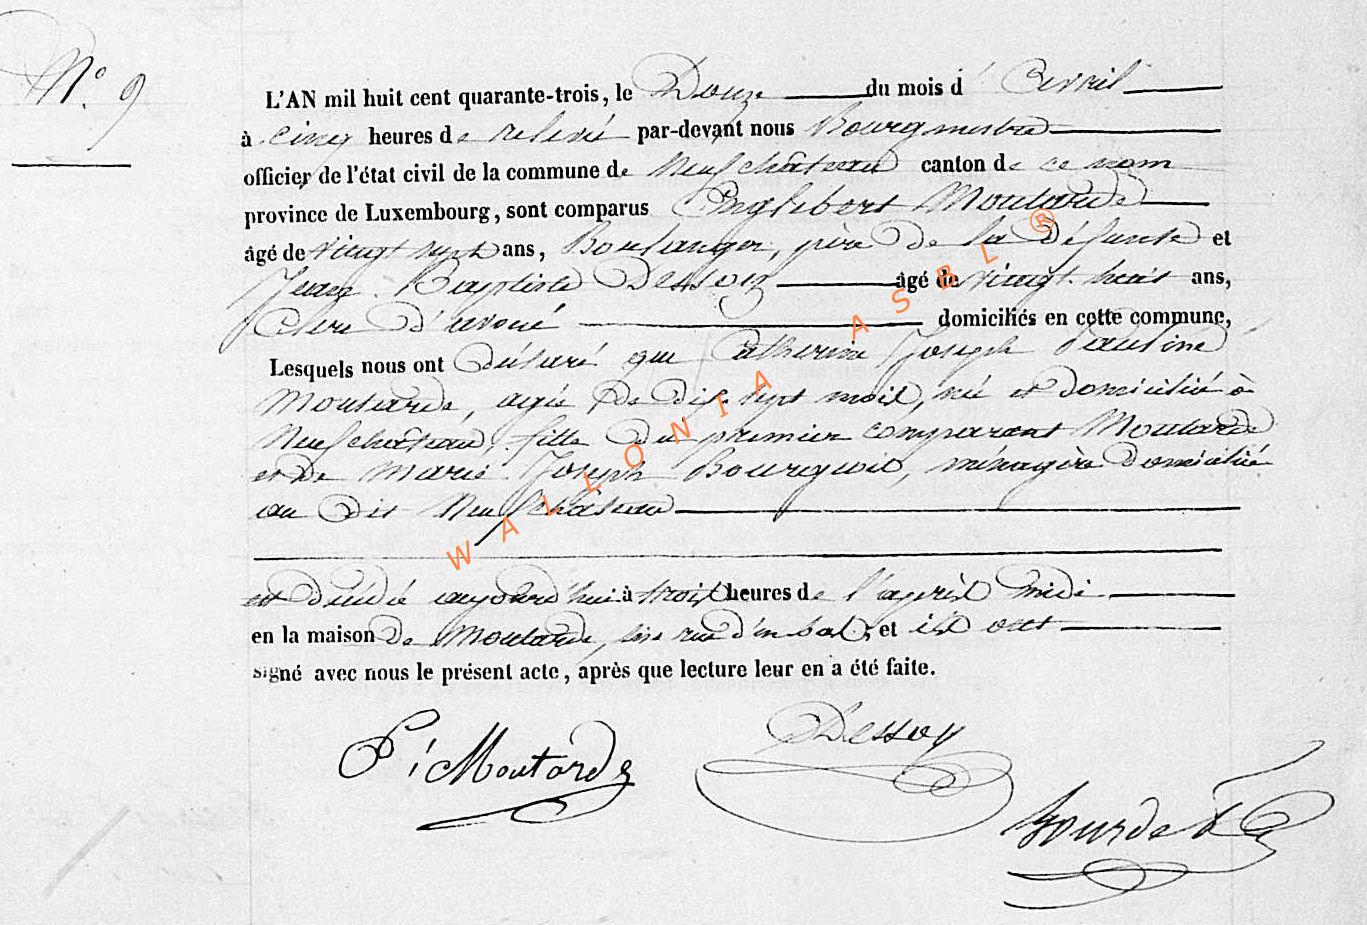 N.° 9
L'AN mil huit cent quarante-trois, le Douze du mois d'avril
à cinq heures de relevé par-devant nous Bourgmestre
officier de l'état civil de la commune de Neufchâteau canton de ce nom
province de Luxembourg, sont comparus Englebert Moutarde
âgé de vingt sept ans, Boulanger, père de la défunte et
Jean Baptiste Dessoy âgé de vingt huit ans,
Clerc d'avoué domiciliés en cette commune,
Lesquels nous ont déclaré que Catherine Joseph Pauline
Moutarde, agée de dix sept mois, né et domicilié à
Neufchâteau, fille du premier comparant Moutarde
et de Marie Joseph Bourguois, ménagère domicilié
au dit Neufchâteau
est décédé aujourd'hui à trois heures de l'après midi
en la maison de Moutarde, rue d'en bas, et ils ont
signé avec nous le présent acte, après que lecture leur en a été faite.
Moutarde
Dessoy
WALLONIA ASBL ®